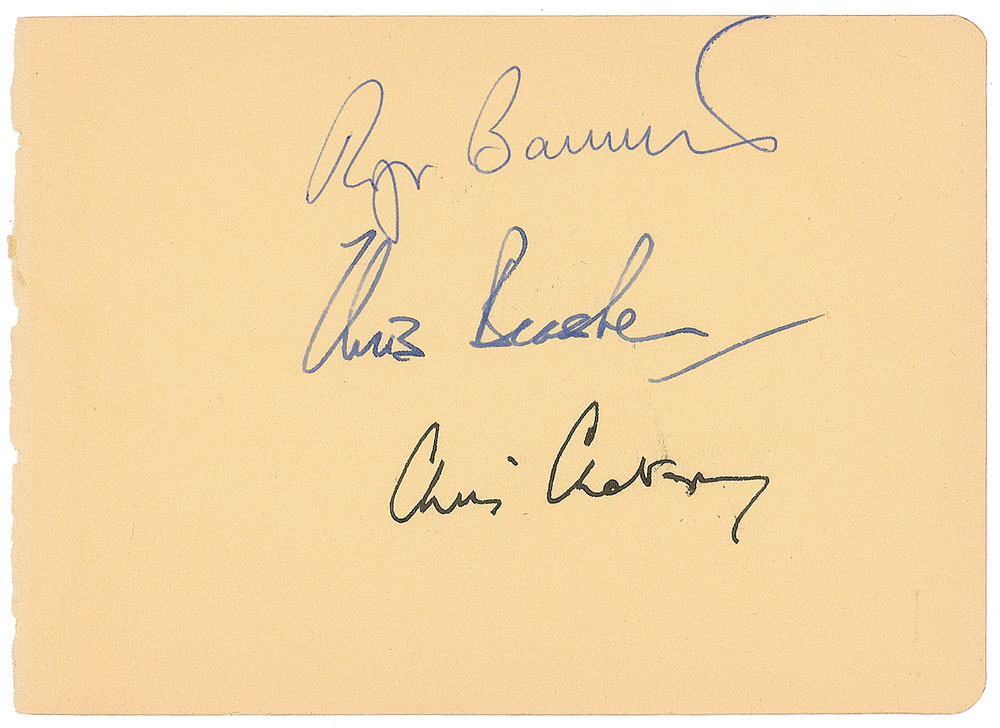 Roger Bannister
Chris Brasher
Chris Chataway